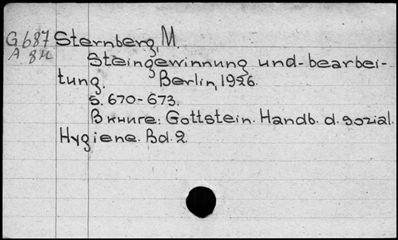 G 687 Sternberg, M.
A 84
Steingewinnung und-bearbei-
tung. Berlin, 1926.
S. 670-673.
В книге: Gottstein. Handb. d. sozial.
Hygiene. Bd. 2.